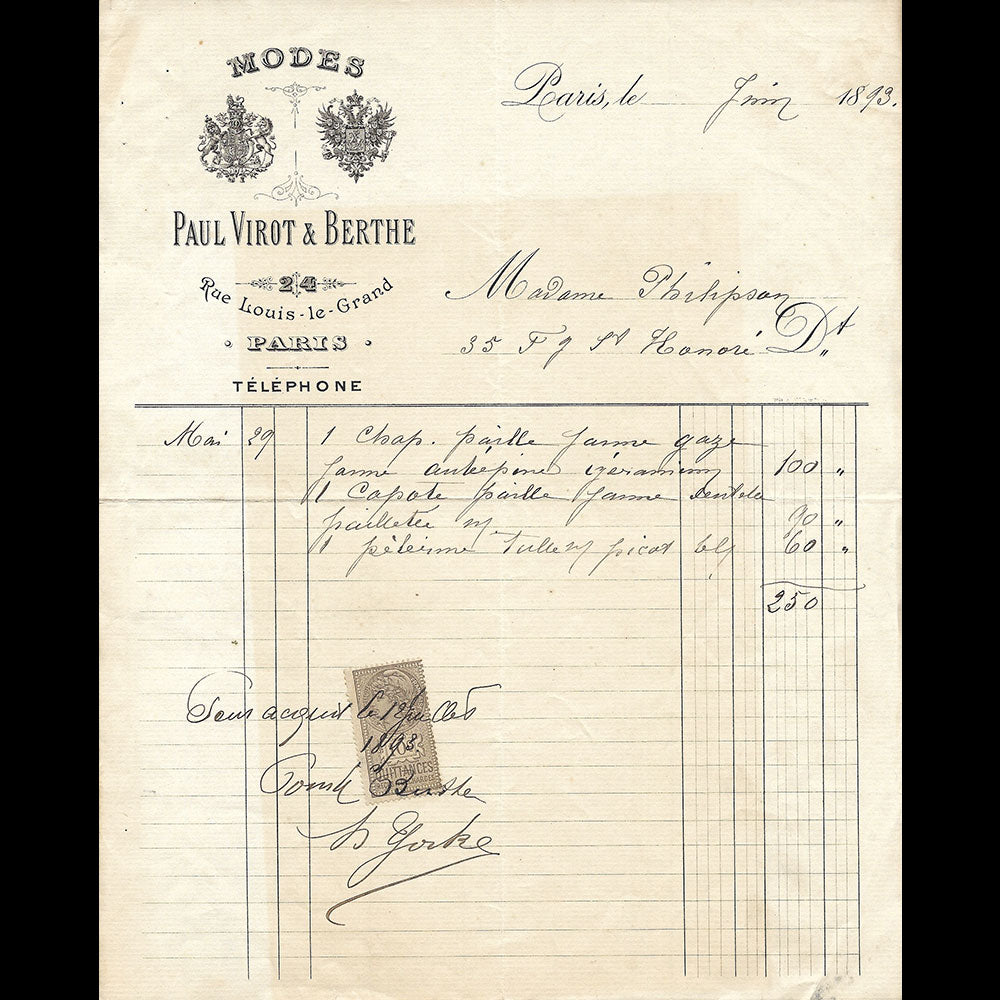 MODES
Paris, le Juin 1893.
PAUL VIROT & BERTHE
24
Rue Louis-le-Grand
PARIS
TÉLÉPHONE
Madame Philipson
35 Fg St Honoré Dt
Mai 29 1 Chap. paille jaune gaze
jaune aubépine géranium 100 "
1 Capote paille jaune dentelle
pailletée 90 "
1 pélerine Tulle picot 60 "
250
Pour acquit le 12 Juillet
1893.
10
QUITTANCES
Berthe
Yorke